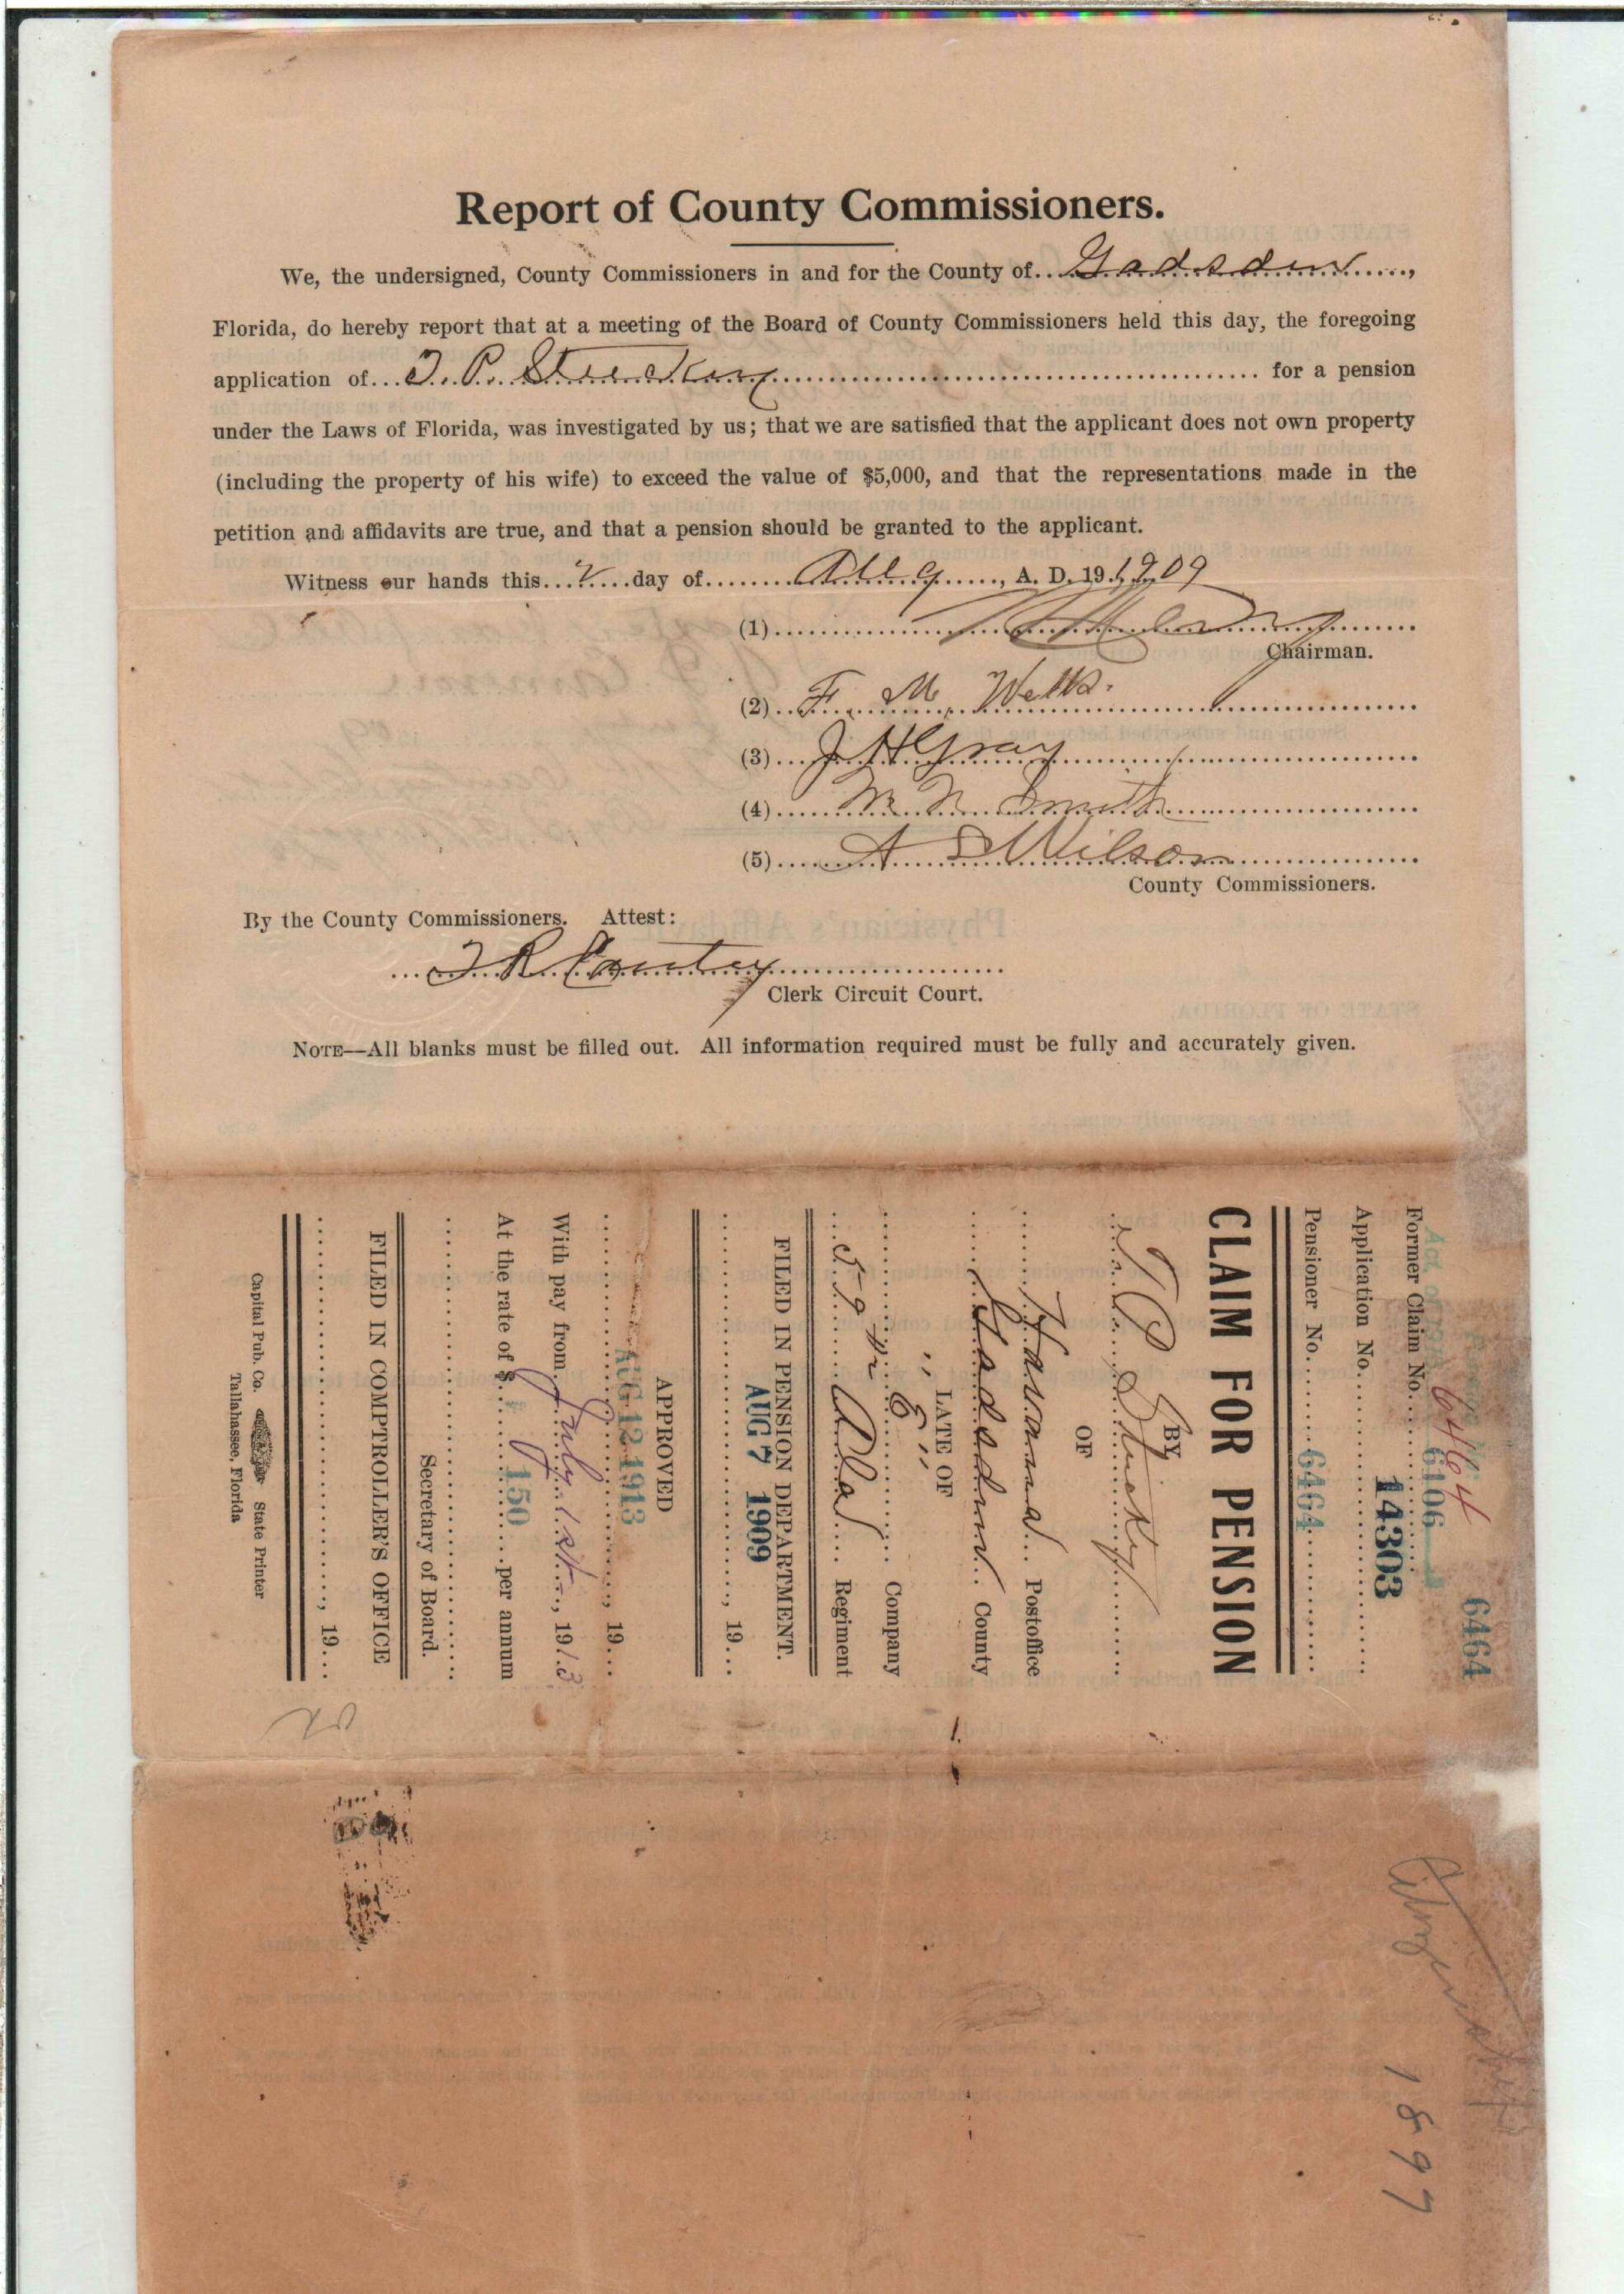 Report of County Commissioners.
We, the undersigned, County Commissioners in and for the County of Gadsden,
Florida, do hereby report that at a meeting of the Board of County Commissioners held this day, the foregoing
application of T. P. Stuckey for a pension
under the Laws of Florida, was investigated by us; that we are satisfied that the applicant does not own property
(including the property of his wife) to exceed the value of $5,000, and that the representations made in the
petition and affidavits are true, and that a pension should be granted to the applicant.
Witness our hands this day of Aug, A. D. 19 1909
(1)
Chairman.
(2) F. M. Wells.
(3) J H Gray
(4) M. N. Smith
(5) A S Wilson
County Commissioners.
By the County Commissioners. Attest:
Clerk Circuit Court.
NOTE—All blanks must be filled out. All information required must be fully and accurately given.
6464
Former Claim No. 6106 6464
Application No. 14303
Pensioner No. 6464
CLAIM FOR PENSION
BY
T P Stuckey
OF
Havana Postoffice
Gadsden County
LATE OF
"E" Company
59 Ala Regiment
FILED IN PENSION DEPARTMENT.
AUG 7 1909, 19
APPROVED
AUG 12 1913, 19
With pay from July 1st, 1913
At the rate of $ 150 per annum
Secretary of Board.
FILED IN COMPTROLLER'S OFFICE
, 19
Capital Pub. Co. State Printer
Tallahassee, Florida
1897